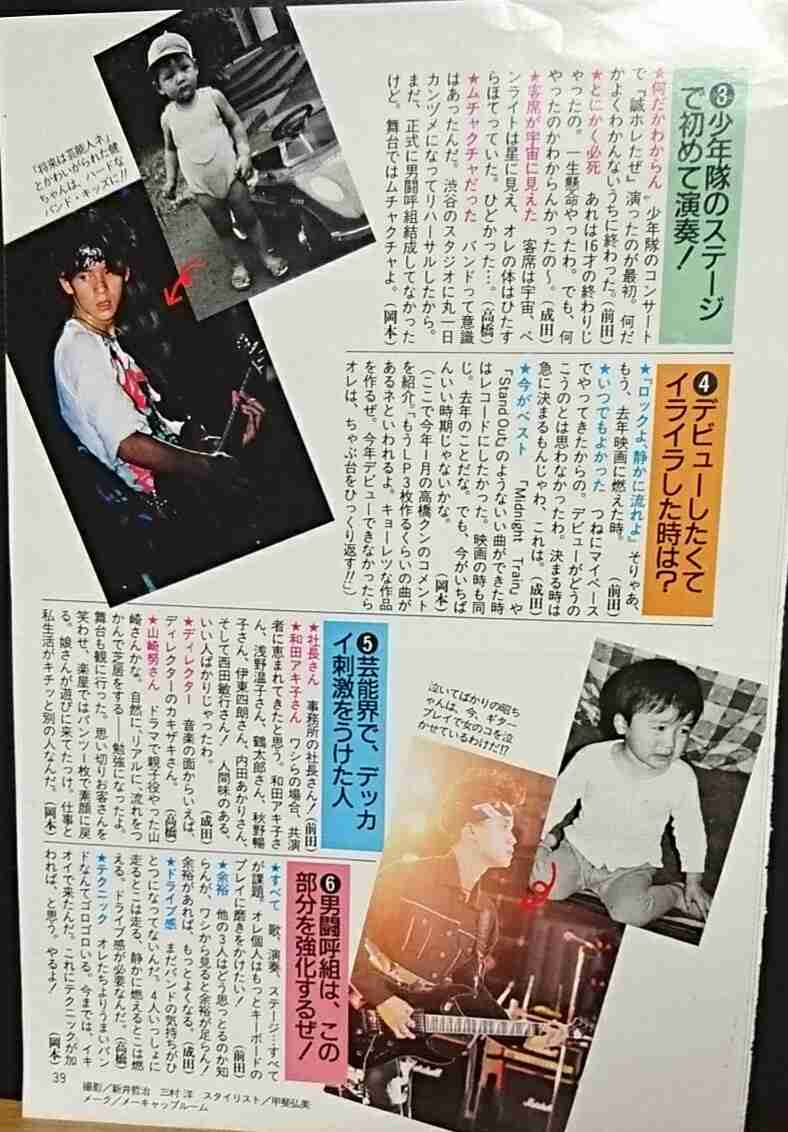 ❸少年隊のステージ
で初めて演奏！
★何だかわからん　少年隊のコンサート
で「誠ホレたぜ」演ったのが最初。何だ
かよくわかんないうちに終わった。(前田)
★とにかく必死　あれは16才の終わりじ
ゃったの。一生懸命やったわ。でも、何
やったのかわからんかったの〜。(成田)
★客席が宇宙に見えた　客席は宇宙、ペ
ンライトは星に見え、オレの体はひたす
らほてっていた。ひどかった…。(高橋)
★ムチャクチャだった　バンドって意識
はあったんだ。渋谷のスタジオに丸一日
カンヅメになってリハーサルしたから。
まだ、正式に男闘呼組結成してなかった
けど。舞台ではムチャクチャよ。(岡本)
「将来は芸能人ネ」
とかわいがられた健
ちゃんは、ハードな
バンド・キッズに!!
❹デビューしたくて
イライラした時は？
★「ロックよ、静かに流れよ」そりゃあ、
もう、去年映画に燃えた時。(前田)
★いつでもよかった　つねにマイペース
でやってきたからの。デビューがどうの
こうのとは思わなかったわ。決まる時は
急に決まるもんじゃわ、これは。(成田)
★今がベスト　「Midnight Train」や
「Stand Out」のようないい曲ができた時
はレコードにしたかった。映画の時も同
じ。去年のことだな。でも、今がいちば
んいい時期じゃないかな。(岡本)
(ここで今年1月の高橋クンのコメント
を紹介。「もうLP3枚作るくらいの曲が
あるネといわれるよ。キョーレツな作品
を作るぜ。今年デビューできなかったら
オレは、ちゃぶ台をひっくり返す!!」)
❺芸能界で、デッカ
イ刺激をうけた人
★社長さん　事務所の社長さん！(前田)
★和田アキ子さん　ワシらの場合、共演
者に恵まれてきたと思う。和田アキ子さ
ん、浅野温子さん、鶴太郎さん、秋野暢
子さん、伊東四朗さん、内田あかりさん、
そして西田敏行さん！　人間味のある、
いい人ばかりじゃったわ。(成田)
★ディレクター　音楽の面からいえば、
ディレクターのカキザキさん。(高橋)
★山崎努さん　ドラマで親子役やった山
崎さんかな。自然に、リアルに、流れをつ
かんで芝居をする——勉強になったよ。
舞台も観に行った。思い切りお客さんを
笑わせ、楽屋ではパンツ一枚で素顔に戻
る。娘さんが遊びに来てたっけ。仕事と
私生活がキチッと別の人なんだ。(岡本)
泣いてばかりの昭ち
ゃんは、今、ギター
プレイで女のコを泣
かせているわけだ!?
❻男闘呼組は、この
部分を強化するぜ！
★すべて　歌、演奏、ステージ…すべて
が課題。オレ個人はもっとキーボードの
プレイに磨きをかけたい！(前田)
★余裕　他の3人はどう思っとるのか知
らんが、ワシから見ると余裕が足らん！
余裕があれば、もっとよくなる。(成田)
★ドライブ感　まだバンドの気持ちがひ
とつになってないんだ。4人いっしょに
走るとこは走る、静かに燃えるとこは燃
える。ドライブ感が必要なんだ。(高橋)
★テクニック　オレたちよりうまいバン
ドなんてゴロゴロいる。今までは、イキ
オイで来たんだ。これにテクニックが加
われば、と思う。やるよ！(岡本)
撮影／新井哲治　三村 洋　スタイリスト／甲斐弘美
メーク／メーキャップルーム
39